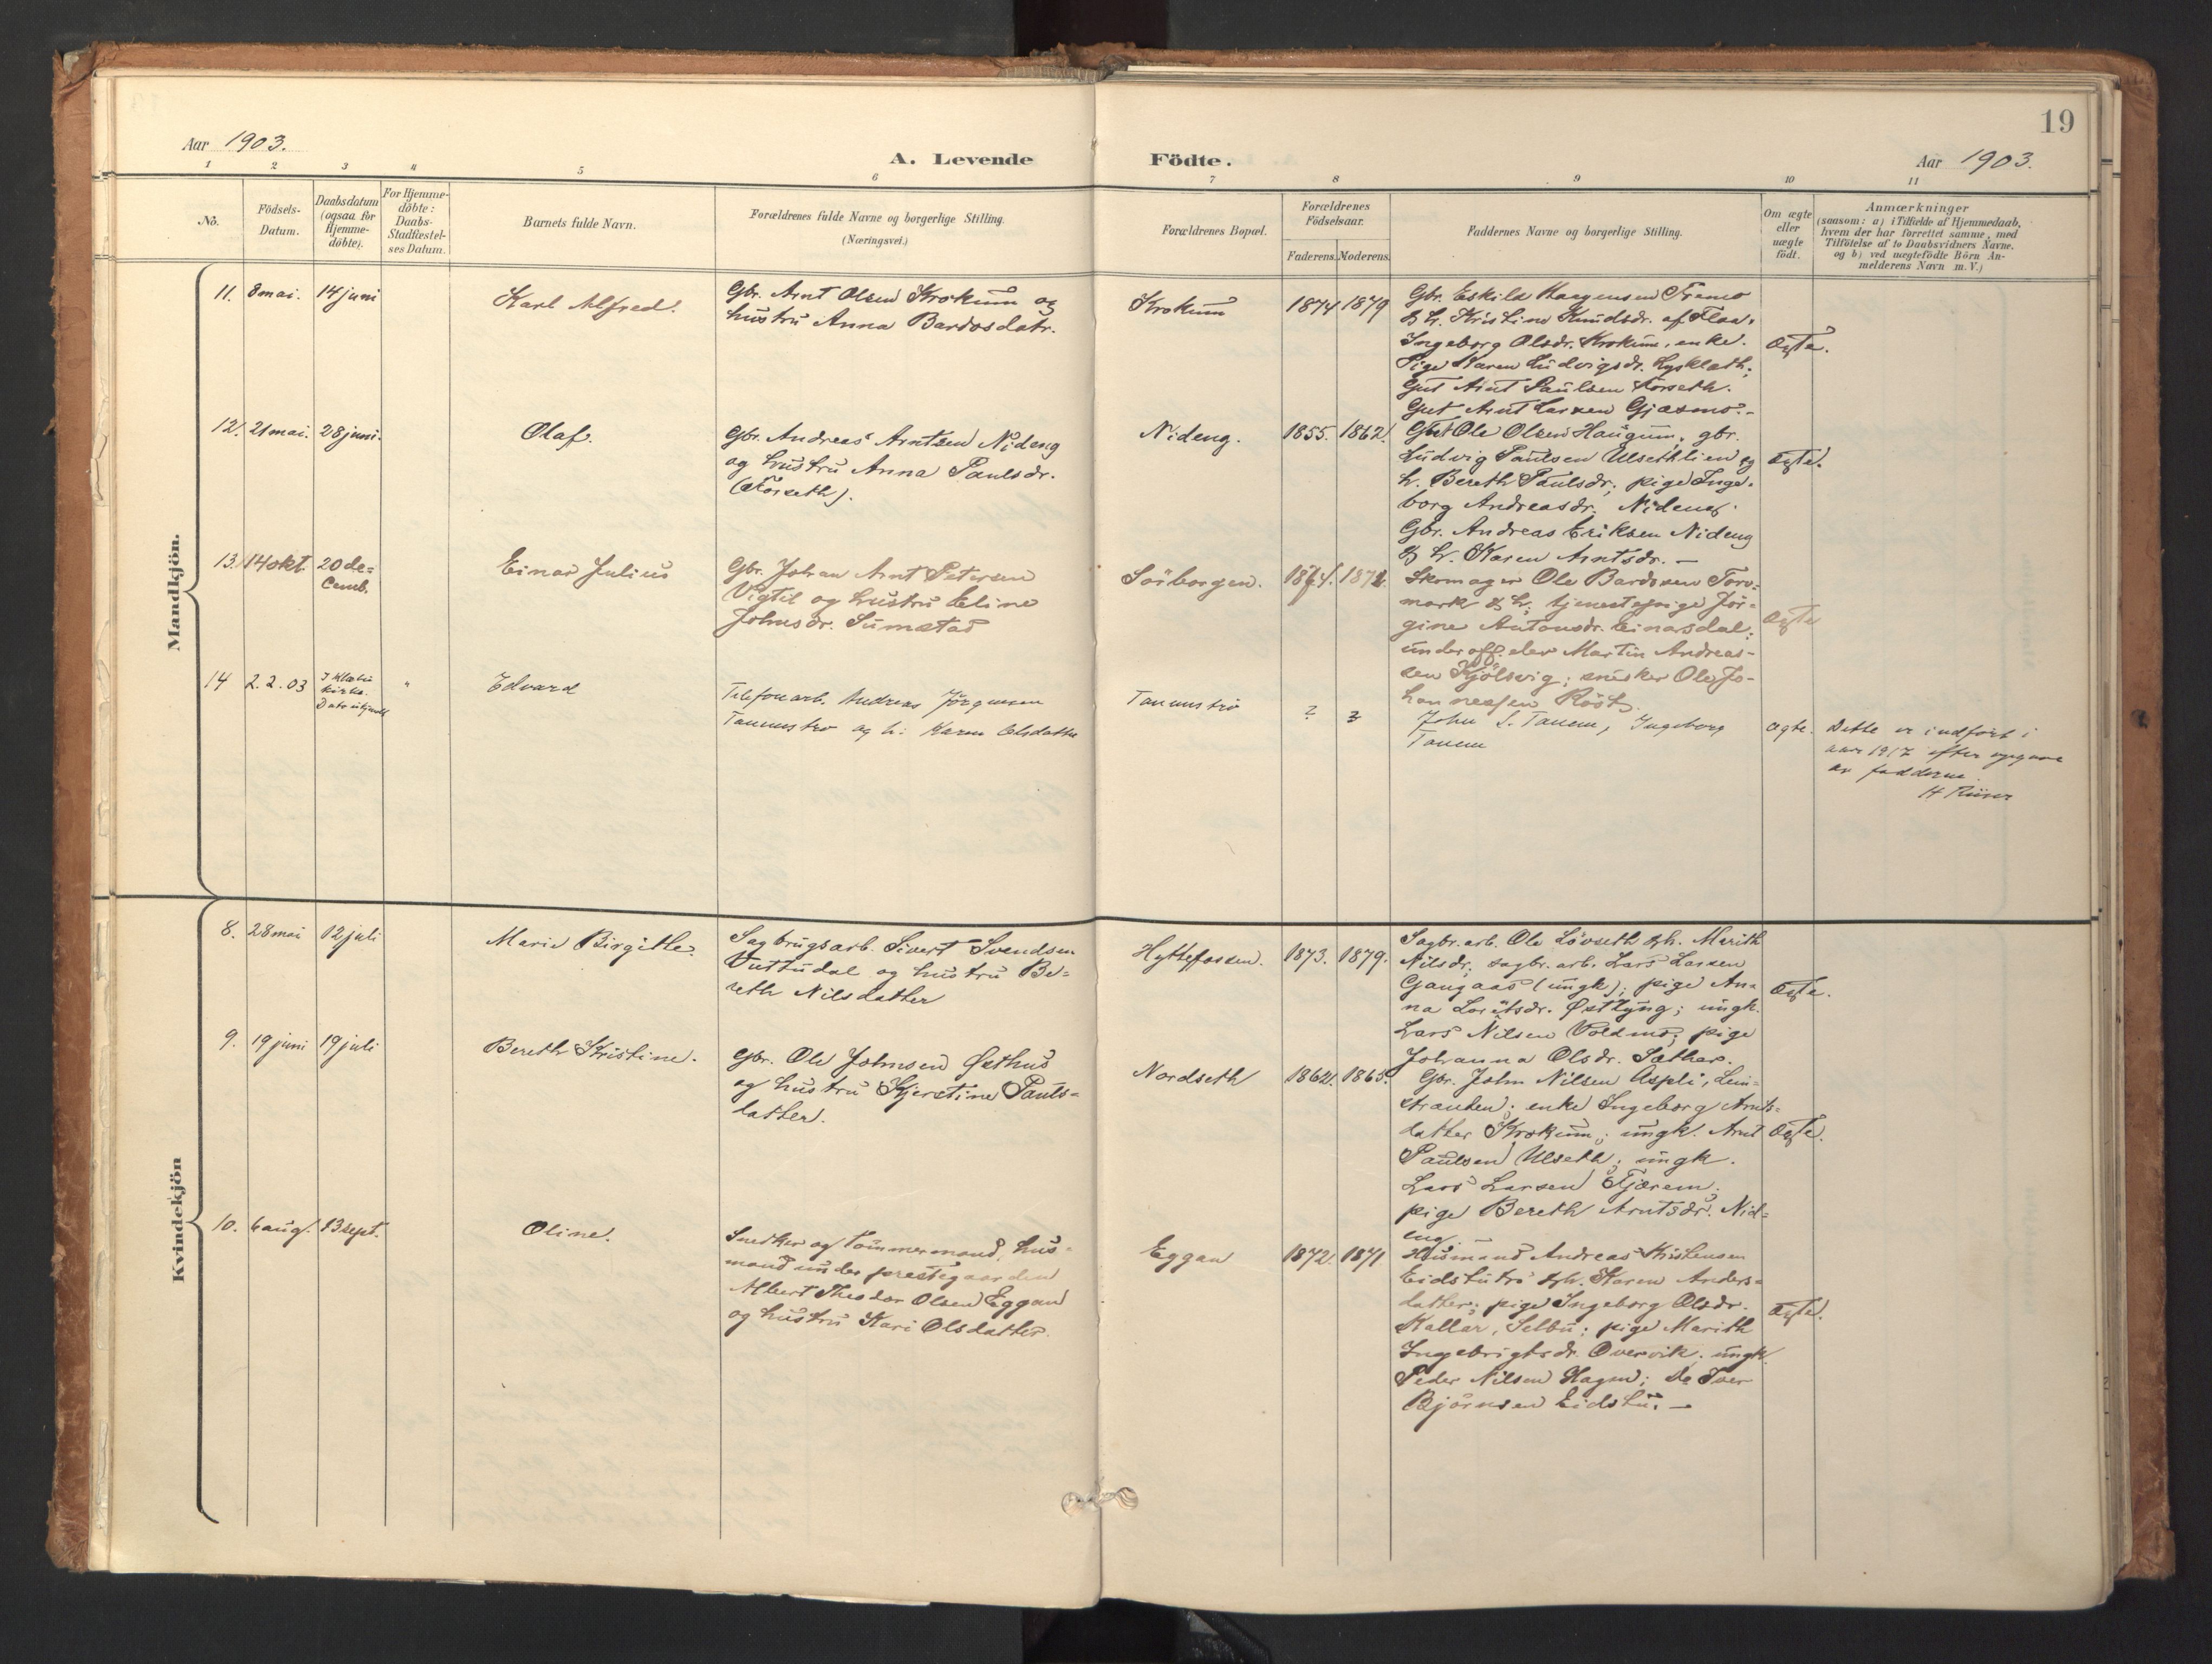 19
Aar 1903.
A. Levende Födte.
Aar 1903.
1 2 3 4 5 6 7 8 9 10 11
No.
Födsels-
Datum.
Daabsdatum
(ogsaa for
Hjemme-
döbte).
For Hjemme-
döbte:
Daabs-
Stadfæstel-
ses Datum.
Barnets fulde Navn.
Forældrenes fulde Navne og borgerlige Stilling.
(Næringsvei.)
Forældrenes Bopæl.
Forældrenes
Födselsaar.
Faderens. Moderens.
Faddernes Navne og borgerlige Stilling.
Om ægte
eller
uægte
født.
Anmærkninger
(saasom: a) i Tilfælde af Hjemmedaab,
hvem der har forrettet samme, med
Tilföielse af to Daabsvidners Navne.
og b) ved uægtefödte Börn An-
melderens Navn m. V.)
Mandkjön.
11. 8 mai. 14 juni
Karl Alfred.
Gbr. Arnt Olsen Krokum og
hustru Anna Bardosdatr.
Krokum
1874 1879
Gbr. Eskild Haagensen Tremo
& h. Kristine Knudsdr. af Flaa.
Ingeborg Olsdr. Krokum, enke.
Pige Karen Ludvigsdr. Lysklæth;
Gut Arnt Paulsen Forseth.
Gut Arnt Larsen Gjæsmo.-
Ægte.
12. 21 mai. 28 juni.
Olaf.
Gbr. Andreas Arntsen Nideng
og hustru Anna Paulsdr.
(Forseth).
Nideng.
1855. 1862.
Gut Ole Olsen Haugum, gbr.
Ludvig Paulsen Ulsethlien og
h. Bereth Paulsdr; pige Inge-
borg Andreasdr. Nideng.
Gbr. Andreas Eriksen Nideng
& h. Karen Arntsdr. -
Ægte.
13. 14 okt. 20 de=
cemb.
Einar Julius
Gbr. Johan Arnt Petersen
Vigtil og hustru Eline
Johnsdr. Sumstad
Sörborgen.
1874. 1872.
Skomager Ole Bardosen Torv=
mark & h; tjenestepige Jör-
gine Antonsdr. Einarsdal;
underoff. elev Martin Andreas-
sen Kjölsvig; snesker Ole Jo-
hannessen Röst.
Ægte
14 2.2.03 I Klæbu
kirke.
Dato ukjendt
"
Edvard
Telefonarb. Andreas Jörgensen
Tanemstrø og h: Karen Olsdatter
Tanemstrø
? ?
John S. Tanem, Ingeborg
Tanem
Ægte.
Dette er indfört i
aar 1917 efter opgave
av fadderne.
H Riiser
Kvindekjön
8. 28 mai 12 juli
Marie Birgitte.
Sagbrugsarb. Sivert Svendsen
Vuttudal og hustru Be=
reth Nilsdatter
Hyttefossen.
1873. 1879.
Sagbr. arb. Ole Lövseth & h. Marith
Nilsdr; sagbr. arb. Lars Larsen
Gangaas (ungk); pige An=
na Lorntsdr. Østlyng; ungk.
Lars Nilsen Voldmo; pige
Johanna Olsdr. Sæther.
Ægte.
9. 19 juni 19 juli
Bereth Kristine.
Gbr. Ole Johnsen Østhus
og hustru Kjerstine Pauls=
datter.
Nordseth
1862. 1865.
Gbr. John Nilsen Aspli, Lein-
stranden; enke Ingeborg Arnts=
datter Krokum; ungk. Arnt
Paulsen Ulseth; ungk.
Lars Larsen Tjærem;
pige Bereth Arntsdr. Nid=
eng. -
Ægte.
10. 6 aug. 13 sept.
Oline.
Snedker og tömmermand, hus-
mand under prestegaarden
Albert Theodor Olsen Eggan
og hustru Kari Olsdatter.
Eggan
1872. 1871
Husmand Andreas Kristensen
Eidstutrø & h. Karen Anders=
datter; pige Ingeborg Olsdr.
Kallar, Selbu; pige Marith
Ingebrigtsdr. Overvik; ungk.
Peder Nilsen Hagen; do Iver
Björnsen Eidstu. -
Ægte.